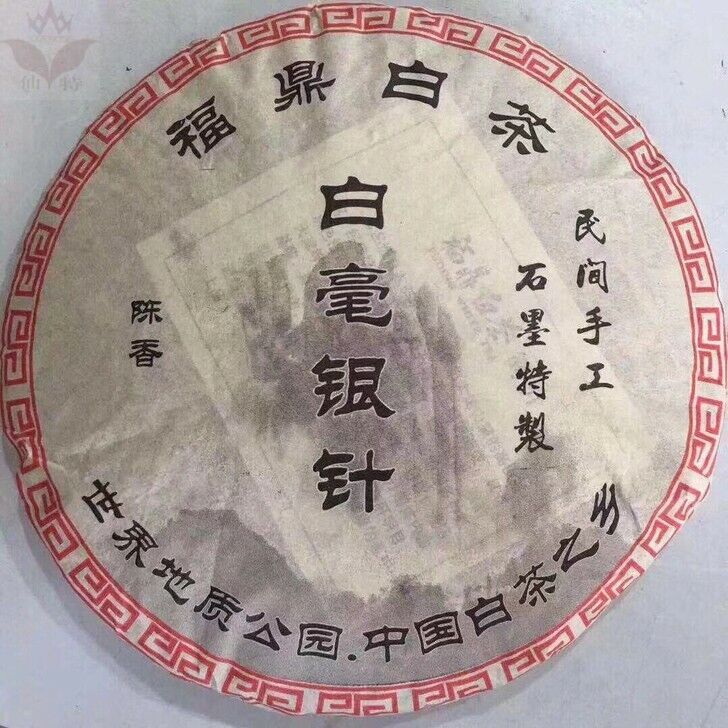 仙特
福鼎白茶
白毫银针
民间手工
石墨特製
陈香
世界地质公园.中国白茶之乡